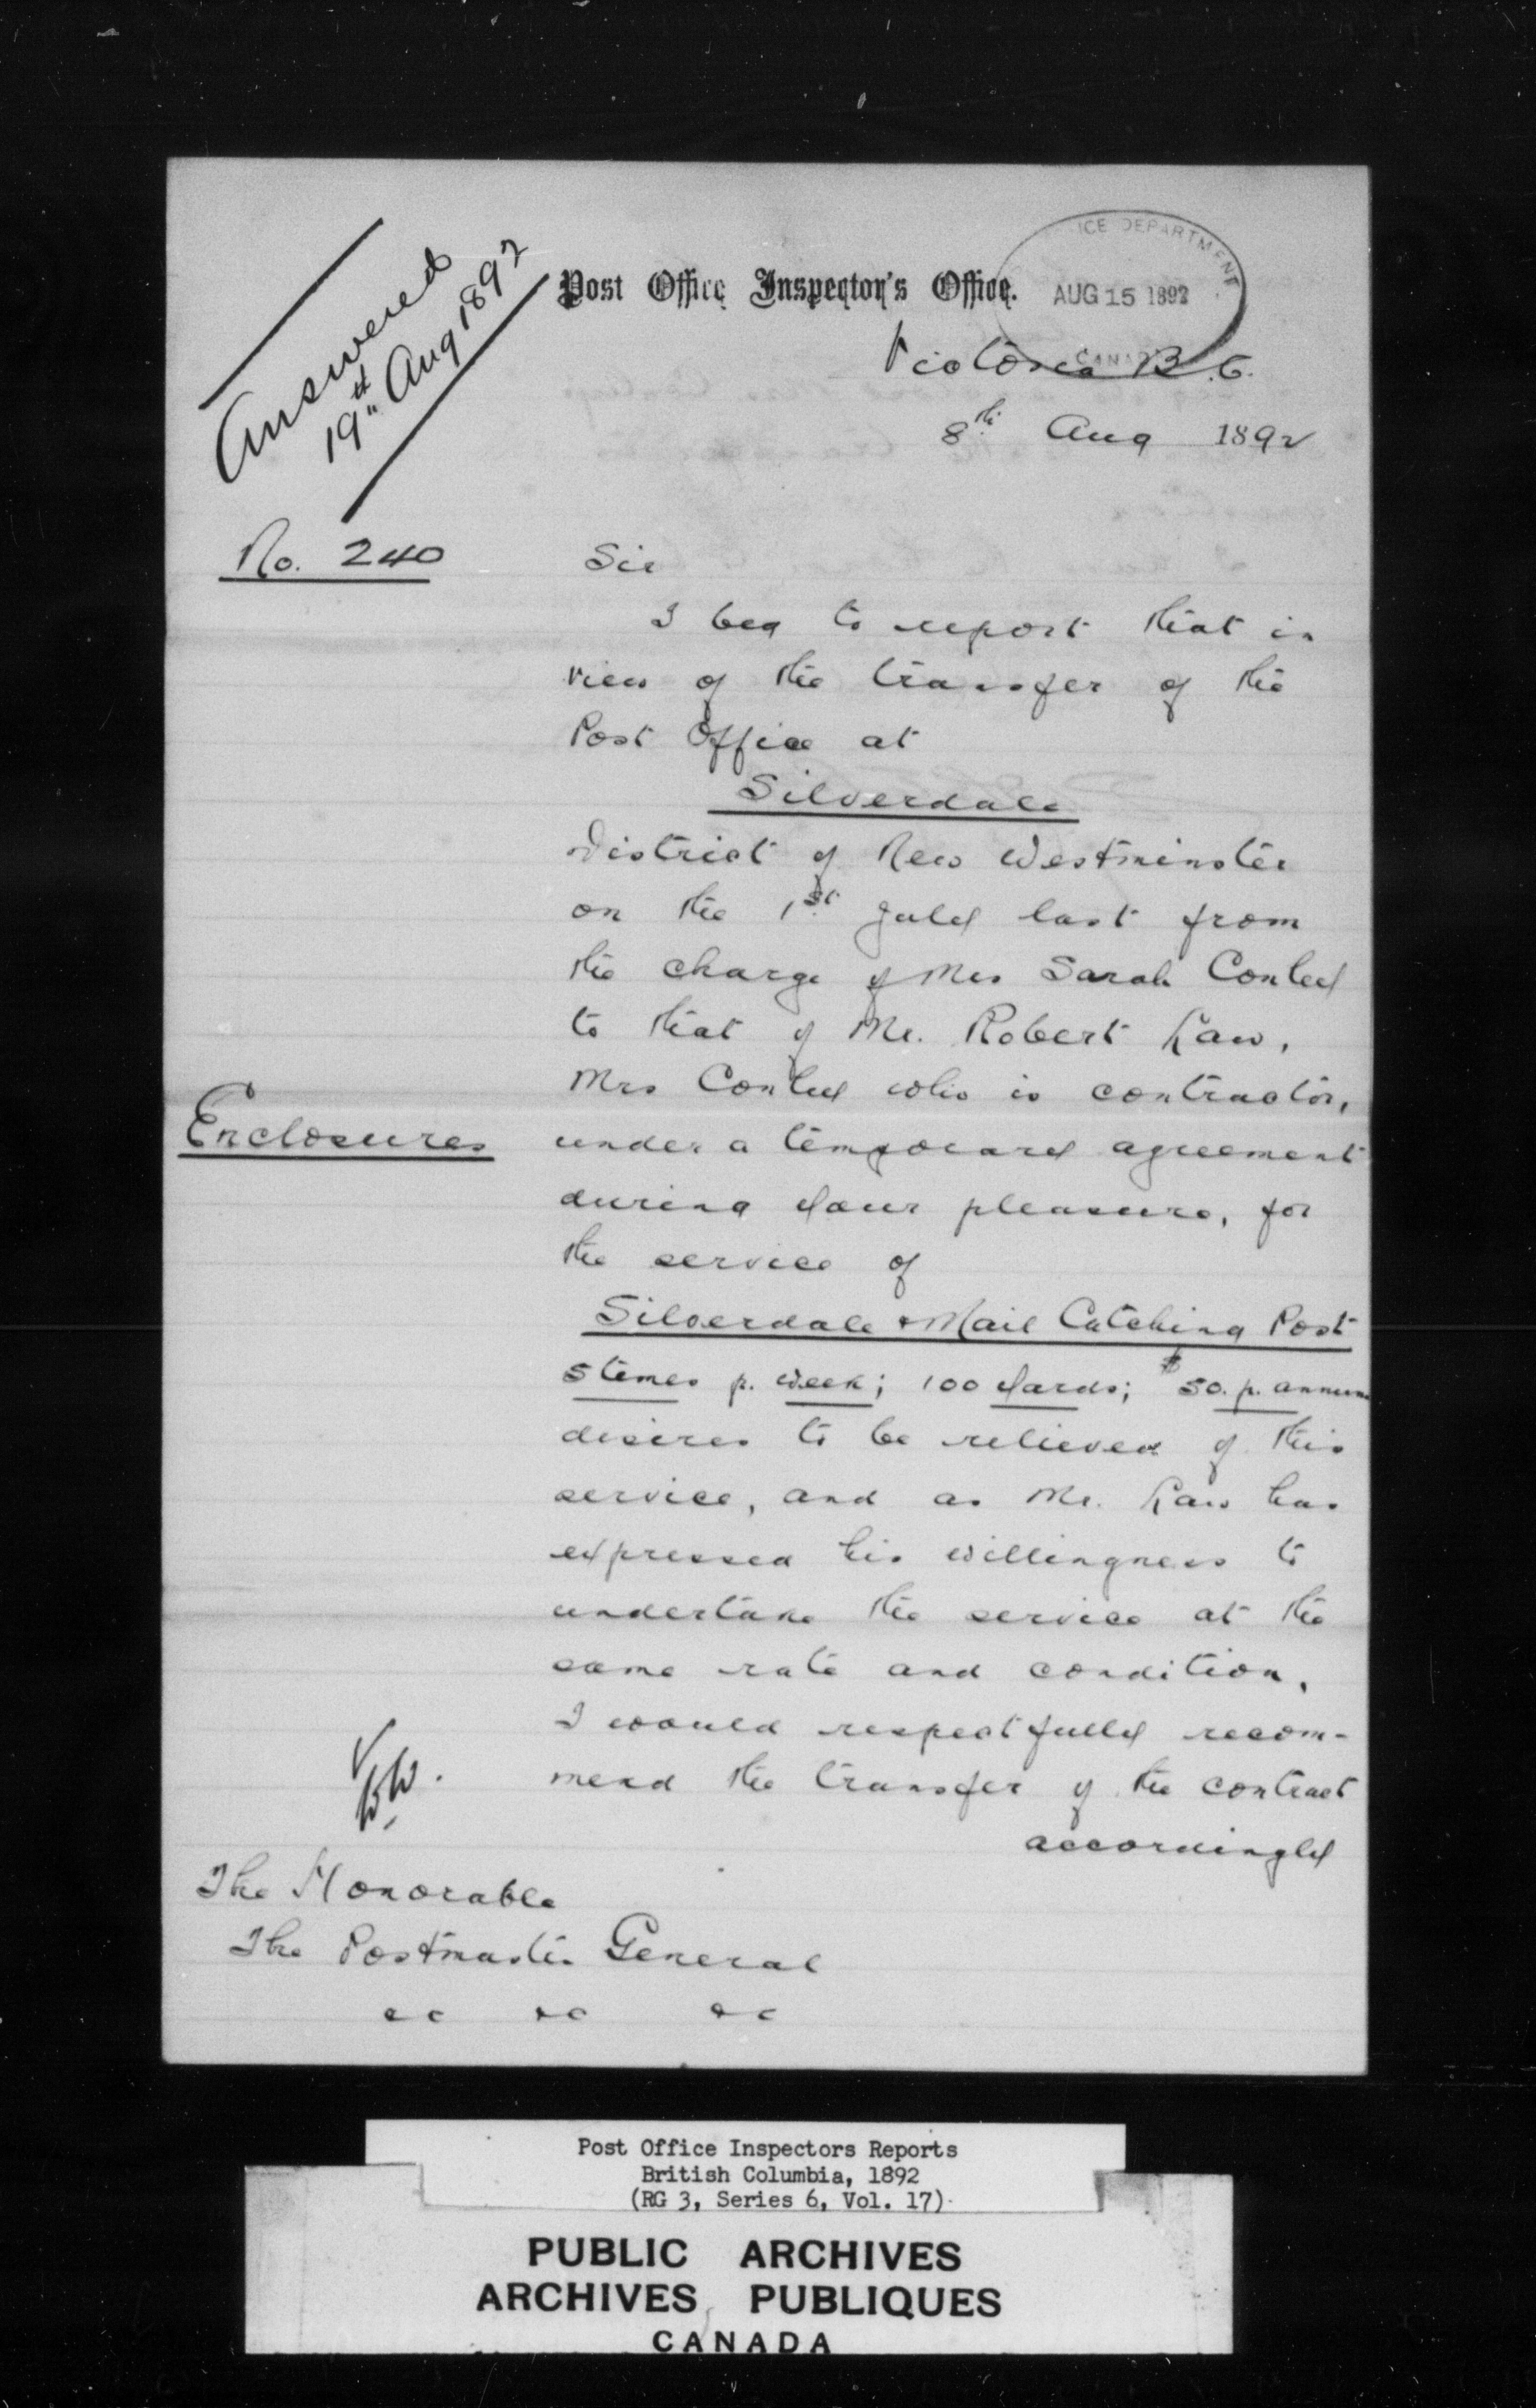 Answered
19th Aug 1892
Post Office Inspector's Office.
ICE DEPARTMENT
AUG 15 1892
CANADA
Victoria B.C.
8th Aug 1892
No. 240
Sir
I beg to report that in
view of the transfer of the
Post Office at
Silverdale
District of New Westminster
on the 1st July last from
the charge of Mrs Sarah Conley
to that of Mr. Robert Law,
Mrs Conley who is contractor,
Enclosures
under a temporary agreement
during your pleasure, for
the service of
Silverdale & Mail Catching Post
5 times p. week; 100 yards; $50. p. annum
desires to be relieved of this
service, and as Mr. Law has
expressed his willingness to
undertake the service at the
same rate and condition,
I would respectfully recom-
mend the transfer of the contract
accordingly
The Honorable
The Postmaster General
&c &c &c
Post Office Inspectors Reports
British Columbia, 1892
(RG 3, Series 6, Vol. 17)
PUBLIC ARCHIVES
ARCHIVES PUBLIQUES
CANADA